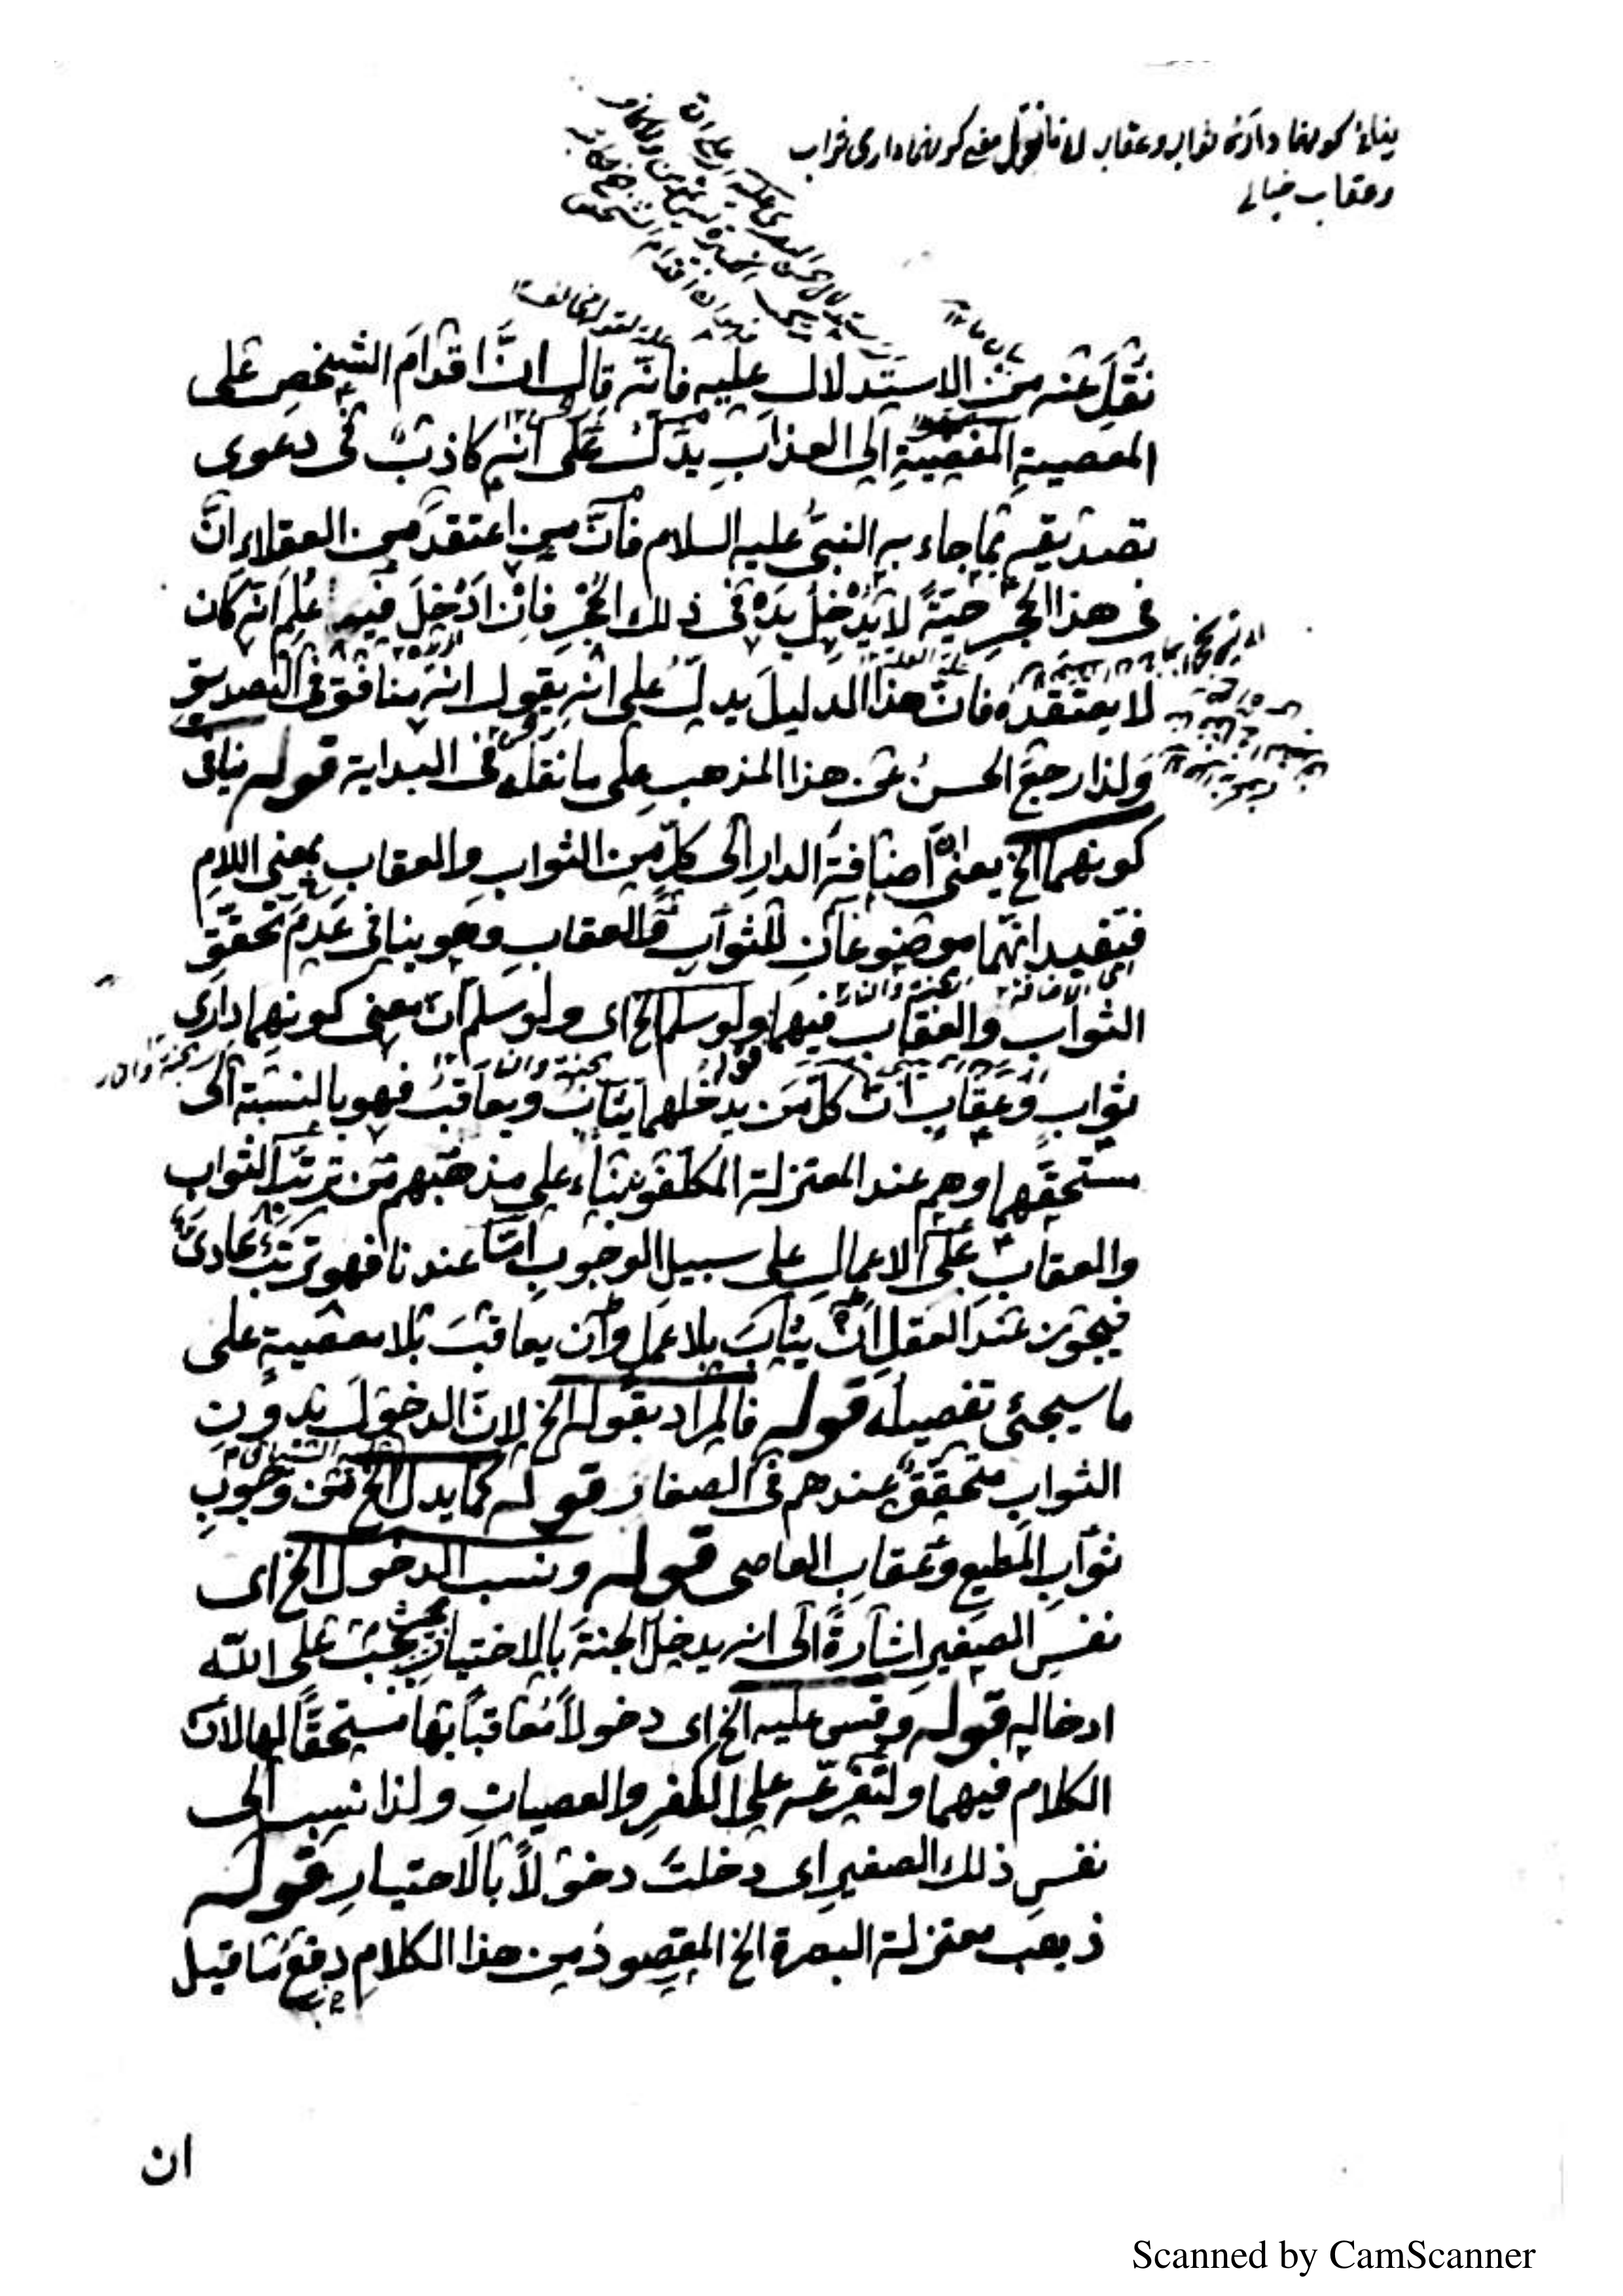 ينافى كونهما دارى ثواب وعقاب لانا نقول معنى كونهما دارى ثواب
وعقاب خيالى
نقل عنه من الاستدلال عليه فانه قال ان اقدام الشخص على
المعصية المفضية الى العذاب يدل على انه كاذب فى دعوى
تصديقه بما جاء به النبى عليه السلام فان من اعتقد من العقلاء ان
فى هذا الحجر حية لا يدخل يده فى ذلك الحجر فان ادخل فيه علم انه كان
لا يعتقده فان هذا الدليل يدل على انه يقول انه منافق فى التصديق
ولذا رجع الحسن عن هذا المذهب على ما نقله فى البداية قوله ينافى
كونهما الخ يعنى ان اضافة الدار الى كل من الثواب والعقاب بمعنى اللام
فتفيد انهما موضوعان للثواب والعقاب وهو ينافى عدم تحقق
الثواب والعقاب فيهما ولو سلم الخ اى ولو سلم ان معنى كونهما دارى
ثواب وعقاب ان كل من يدخلهما يثاب ويعاقب فهو بالنسبة الى
مستحقهما وهم عند المعتزلة المكلفون بناء على مذهبهم من ترتب الثواب
والعقاب على الاعمال على سبيل الوجوب اما عندنا فهو ترتب عادى
فيجوز عند العقل ان يثاب بلا عمل وان يعاقب بلا معصية على
ما سيجئ تفصيله قوله فالمراد بقوله الخ لان الدخول بدون
الثواب متحقق عندهم فى الصغار قوله كما يدل الخ من وجوب
ثواب المطيع وعقاب العاصى قوله ونسب الدخول الخ اى
نفس الصغير اشارة الى انه يدخل الجنة بالاختيار بحيث يجب على الله
ادخاله قوله وقس عليه الخ اى دخولا معاقبا بها مستحقا لها لان
الكلام فيهما ولتفرعه على الكفر والعصيان ولذا نسب الى
نفس ذلك الصغير اى دخلت دخولا بالاختيار قوله
ذهب معتزلة البصرة الخ المقصود من هذا الكلام دفع ما قيل
ان
Scanned by CamScanner